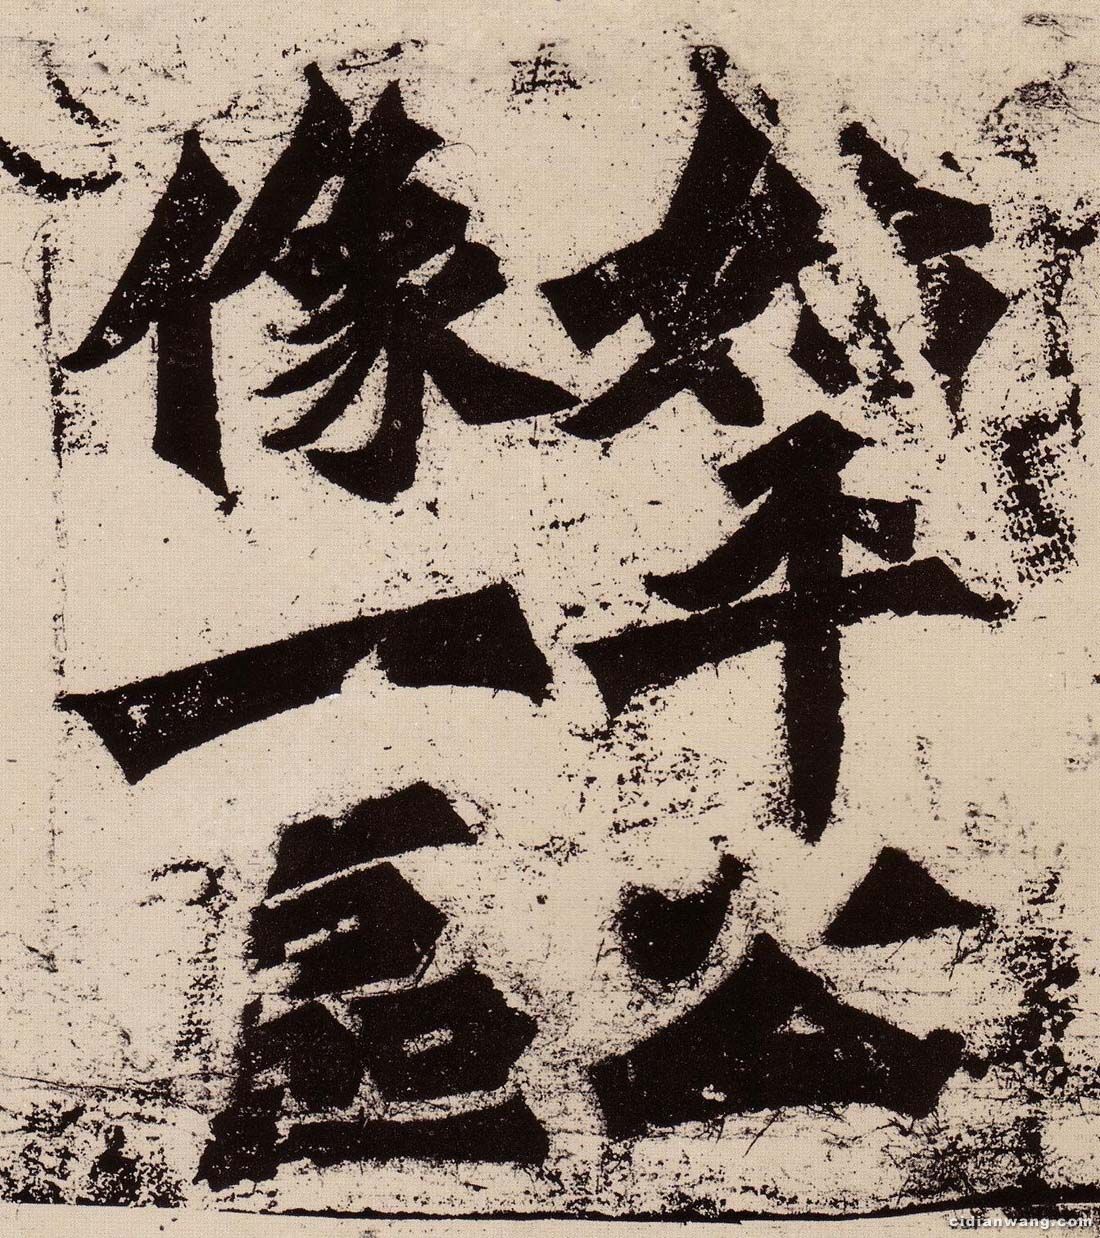 始平公
像一區
cidianwang.com